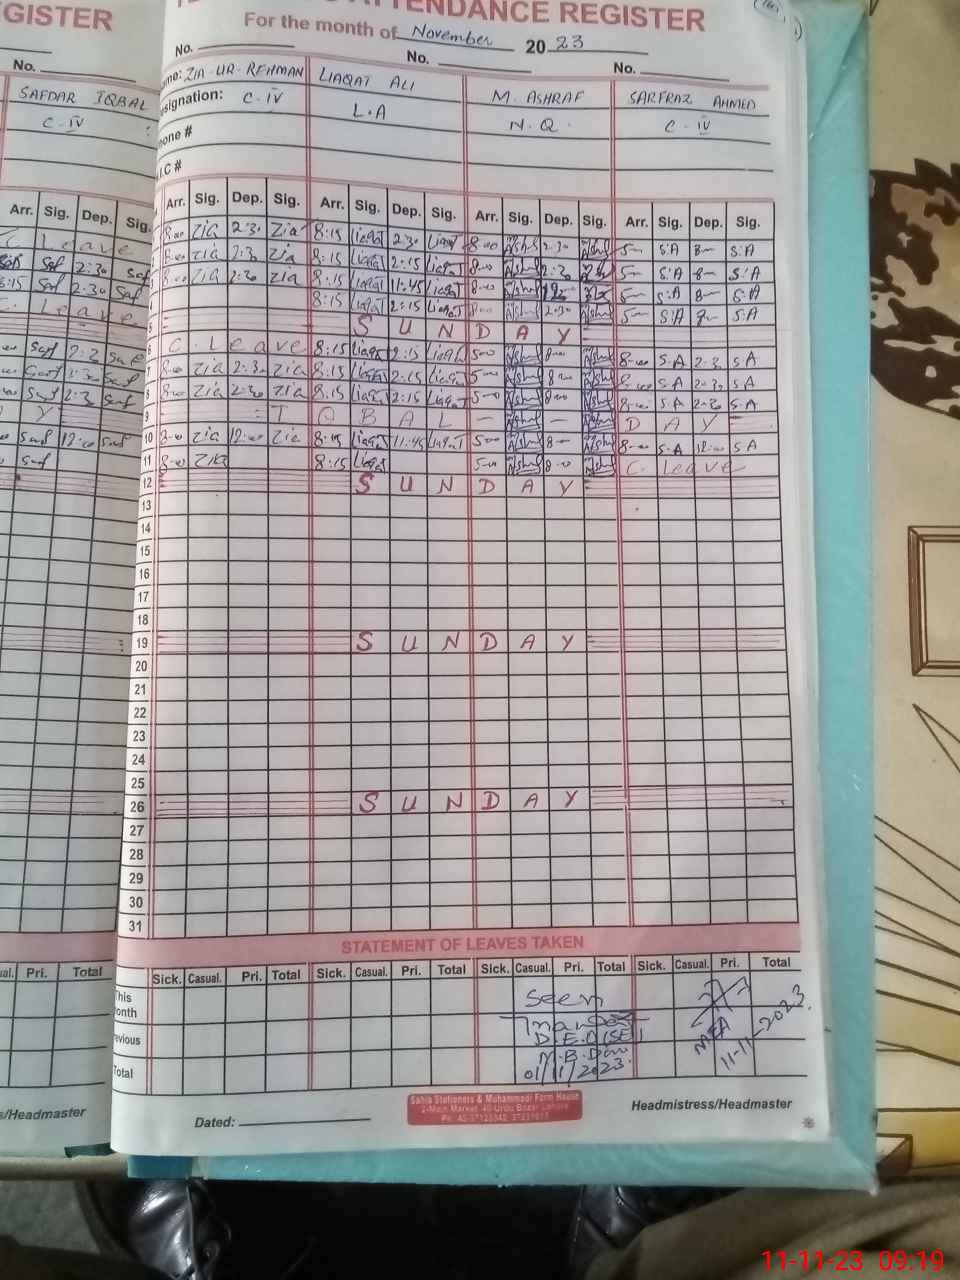 GISTER
ATTENDANCE REGISTER
For the month of November 2023
No.
No.
No.
No.
SAFDAR IQBAL
C-IV
me: ZIA-UR-REHMAN LIAQAT ALI M. ASHRAF SARFRAZ AHMED
signation: C-IV L.A N.Q. C-IV
one #
I.C #
Arr. Sig. Dep. Sig.
Arr. Sig. Dep. Sig. Arr. Sig. Dep. Sig. Arr. Sig. Dep. Sig. Arr. Sig. Dep. Sig.
Leave
8-00 Zia 2:30 Zia 8:15 Liaqat 2:30 Liaqat 8-00 2:30 5- S.A 8- S.A
Saf 2:30 Saf
8-00 Zia 2:30 Zia 8:15 Liaqat 2:15 Liaqat 8-00 2:30 5- S.A 8- S.A
8:15 Saf 2:30 Saf
8-00 Zia 2:30 Zia 8:15 Liaqat 11:45 Liaqat 8-00 5- S.A 8- S.A
C. Leave
8:15 Liaqat 2:15 Liaqat 8-00 2:30 5- S.A S.A
5 SUNDAY
6 C. Leave 8:15 Liaqat 2:15 Liaqat 5-00 8-00 8-00 S.A 2:30 S.A
7 8-00 Zia 2:30 Zia 8:15 Liaqat 2:15 Liaqat 5-00 8-00 8-00 S.A 2:30 S.A
8 8-00 Zia 2:30 Zia 8:15 Liaqat 2:15 Liaqat 5-00 8-00 8-00 S.A 2:30 S.A
9 IQBAL DAY
10 8-00 Zia 12:00 Zia 8:15 Liaqat 11:45 Liaqat 5-00 8-00 8-00 S.A 12:00 S.A
11 8-00 Zia 8:15 Liaqat 5-00 8-00 C. Leave
12 SUNDAY
13
14
15
16
17
18
19 SUNDAY
20
21
22
23
24
25
26 SUNDAY
27
28
29
30
31
STATEMENT OF LEAVES TAKEN
ual. Pri. Total
Sick. Casual. Pri. Total Sick. Casual. Pri. Total Sick. Casual. Pri. Total Sick. Casual. Pri. Total
This
onth
evious
Total
Seen
D.E.O (SE)
M.B.Din
01/11/2023.
MEA
11-11-2023.
s/Headmaster
Dated:
Sahis Stationers & Muhammadi Form House
2-Main Market, 40-Urdu Bazar Lahore
Headmistress/Headmaster
11-11-23 09:19